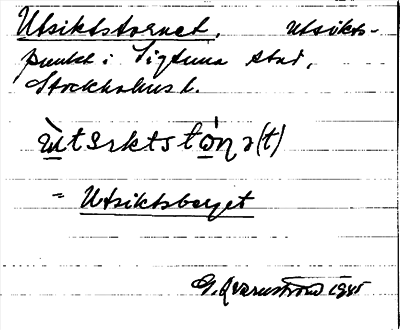 Utsiktstornet, utsikts-
punkt i Sigtuna stad,
Stockholms l.
= Utsiktsberget
G. Qvarnström 1945